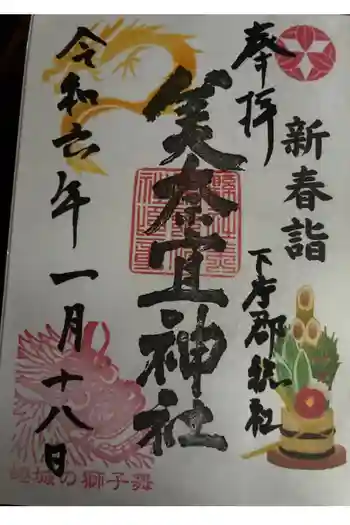 奉拝
新春詣
下座郡総社
美奈宜神社
令和六年一月十八日
の獅子舞